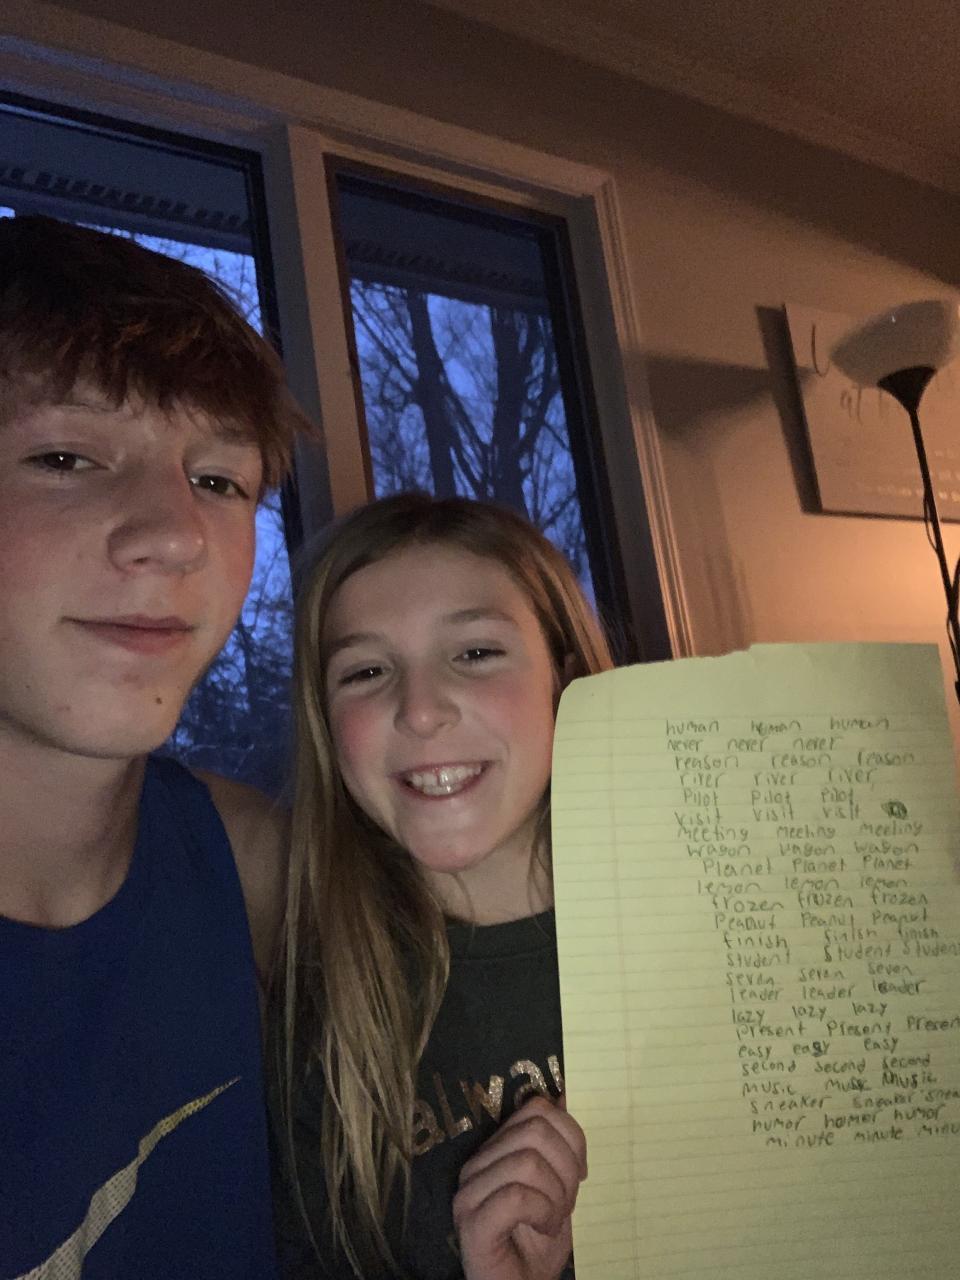 human human human
never never never
reason reason reason
river river river
Pilot Pilot Pilot
visit visit visit
Meeting Meeting Meeting
wagon wagon wagon
Planet Planet Planet
lemon lemon lemon
frozen frozen frozen
Peanut Peanut Peanut
finish finish finish
student student student
seven seven seven
leader leader leader
lazy lazy lazy
Present Present Presen
easy easy easy
second second second
Music Music Music
sneaker sneaker snea
humor humor humor
minute minute minu
aLwa